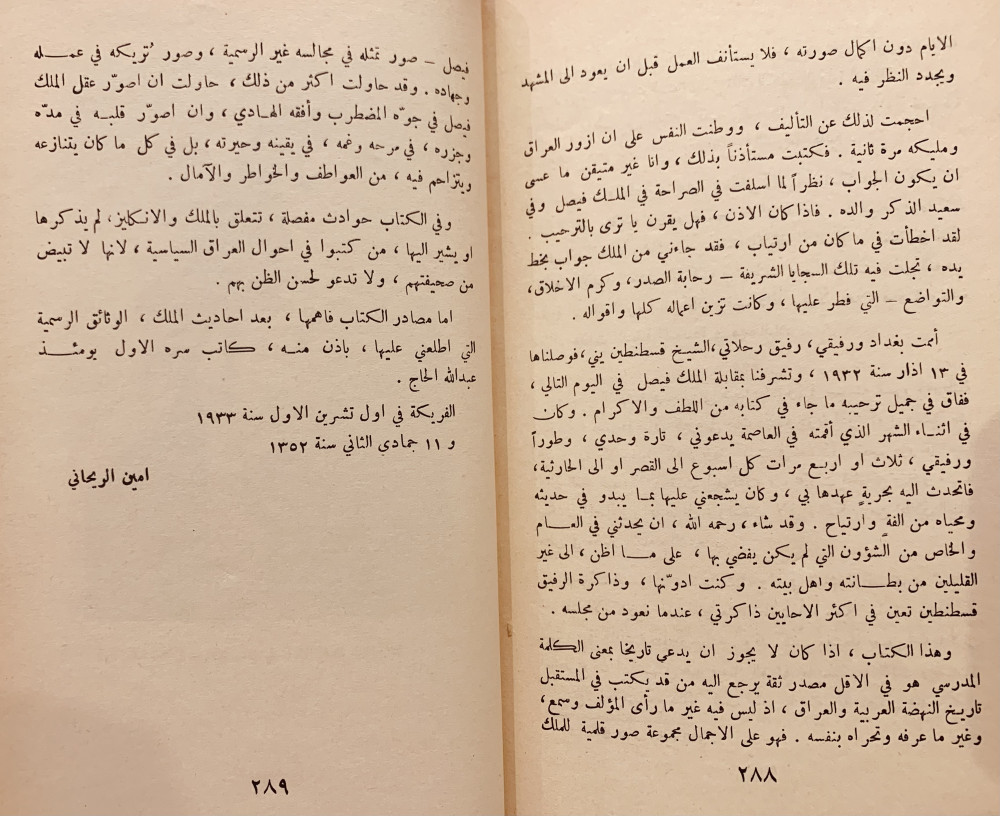 الايام دون اكمال صورته ، فلا يستأنف العمل قبل ان يعود الى المشهد
ويجدد النظر فيه .
احجمت لذلك عن التأليف ، ووطنت النفس على ان ازور العراق
ومليكه مرة ثانية . فكتبت مستأذناً بذلك ، وانا غير متيقن ما عسى
ان يكون الجواب ، نظراً لما اسلفت في الصراحة في الملك فيصل وفي
سعيد الذكر والده . فاذا كان الاذن ، فهل يقرن يا ترى بالترحيب .
لقد اخطأت في ما كان من ارتياب ، فقد جاءني من الملك جواب بخط
يده ، تجلت فيه تلك السجايا الشريفة – رحابة الصدر، وكرم الاخلاق،
والتواضع – التي فطر عليها ، وكانت تزين اعماله كلها واقواله .
أممت بغداد ورفيقي، رفيق رحلاتي،الشيخ قسطنطين يني،فوصلناها
في ١٣ اذار سنة ١٩٣٢ ، وتشرفنا بمقابلة الملك فيصل في اليوم التالي ،
ففاق في جميل ترحيبه ما جاء في كتابه من اللطف والاكرام . وكان
في اثناء الشهر الذي أقمته في العاصمة يدعوني ، تارة وحدي ، وطوراً
ورفيقي ، ثلاث او اربع مرات كل اسبوع الى القصر او الى الحارثية،
فاتحدث اليه بحريةٍ عهدها بي ، وكان يشجعني عليها بما يبدو في حديثه
ومحياه من الفةٍ وارتياح . وقد شاء ، رحمه الله ، ان يحدثني في العام
والخاص من الشؤون التي لم يكن يفضي بها ، على ما اظن ، الى غير
القليلين من بطانته واهل بيته . وكنت ادوّنها ، وذاكرة الرفيق
قسطنطين تعين في اكثر الاحايين ذاكرتي ، عندما نعود من مجلسه .
وهذا الكتاب ، اذا كان لا يجوز ان يدعى تاريخا بمعنى الكلمة
المدرسي هو في الاقل مصدر ثقة يرجع اليه من قد يكتب في المستقبل
تاريخ النهضة العربية والعراق ، اذ ليس فيه غير ما رأى المؤلف وسمع،
وغير ما عرفه وتحراه بنفسه . فهو على الاجمال مجموعة صور قلمية للملك
٢٨٨
فيصل – صور تمثله في مجالسه غير الرسمية ، وصور تُريكه في عمله
وجهاده . وقد حاولت اكثر من ذلك ، حاولت ان اصوّر عقل الملك
فيصل في جوّه المضطرب وأفقه الهادي ، وان اصوّر قلبه في مدّه
وجزره ، في مرحه وغمه ، في يقينه وحيرته ، بل في كل ما كان يتنازعه
ويتزاحم فيه ، من العواطف والخواطر والآمال .
وفي الكتاب حوادث مفصلة ، تتعلق بالملك والانكليز، لم يذكرها
او يشير اليها ، من كتبوا في احوال العراق السياسية ، لانها لا تبيض
من صحيفتهم ، ولا تدعو لحسن الظن بهم .
اما مصادر الكتاب فاهمها ، بعد احاديث الملك ، الوثائق الرسمية
التي اطلعني عليها ، باذن منه ، كاتب سره الاول يومئذ
عبدالله الحاج .
الفريكة في اول تشرين الاول سنة ١٩٣٣
و ١١ جمادي الثاني سنة ١٣٥٢
امين الريحاني
٢٨٩